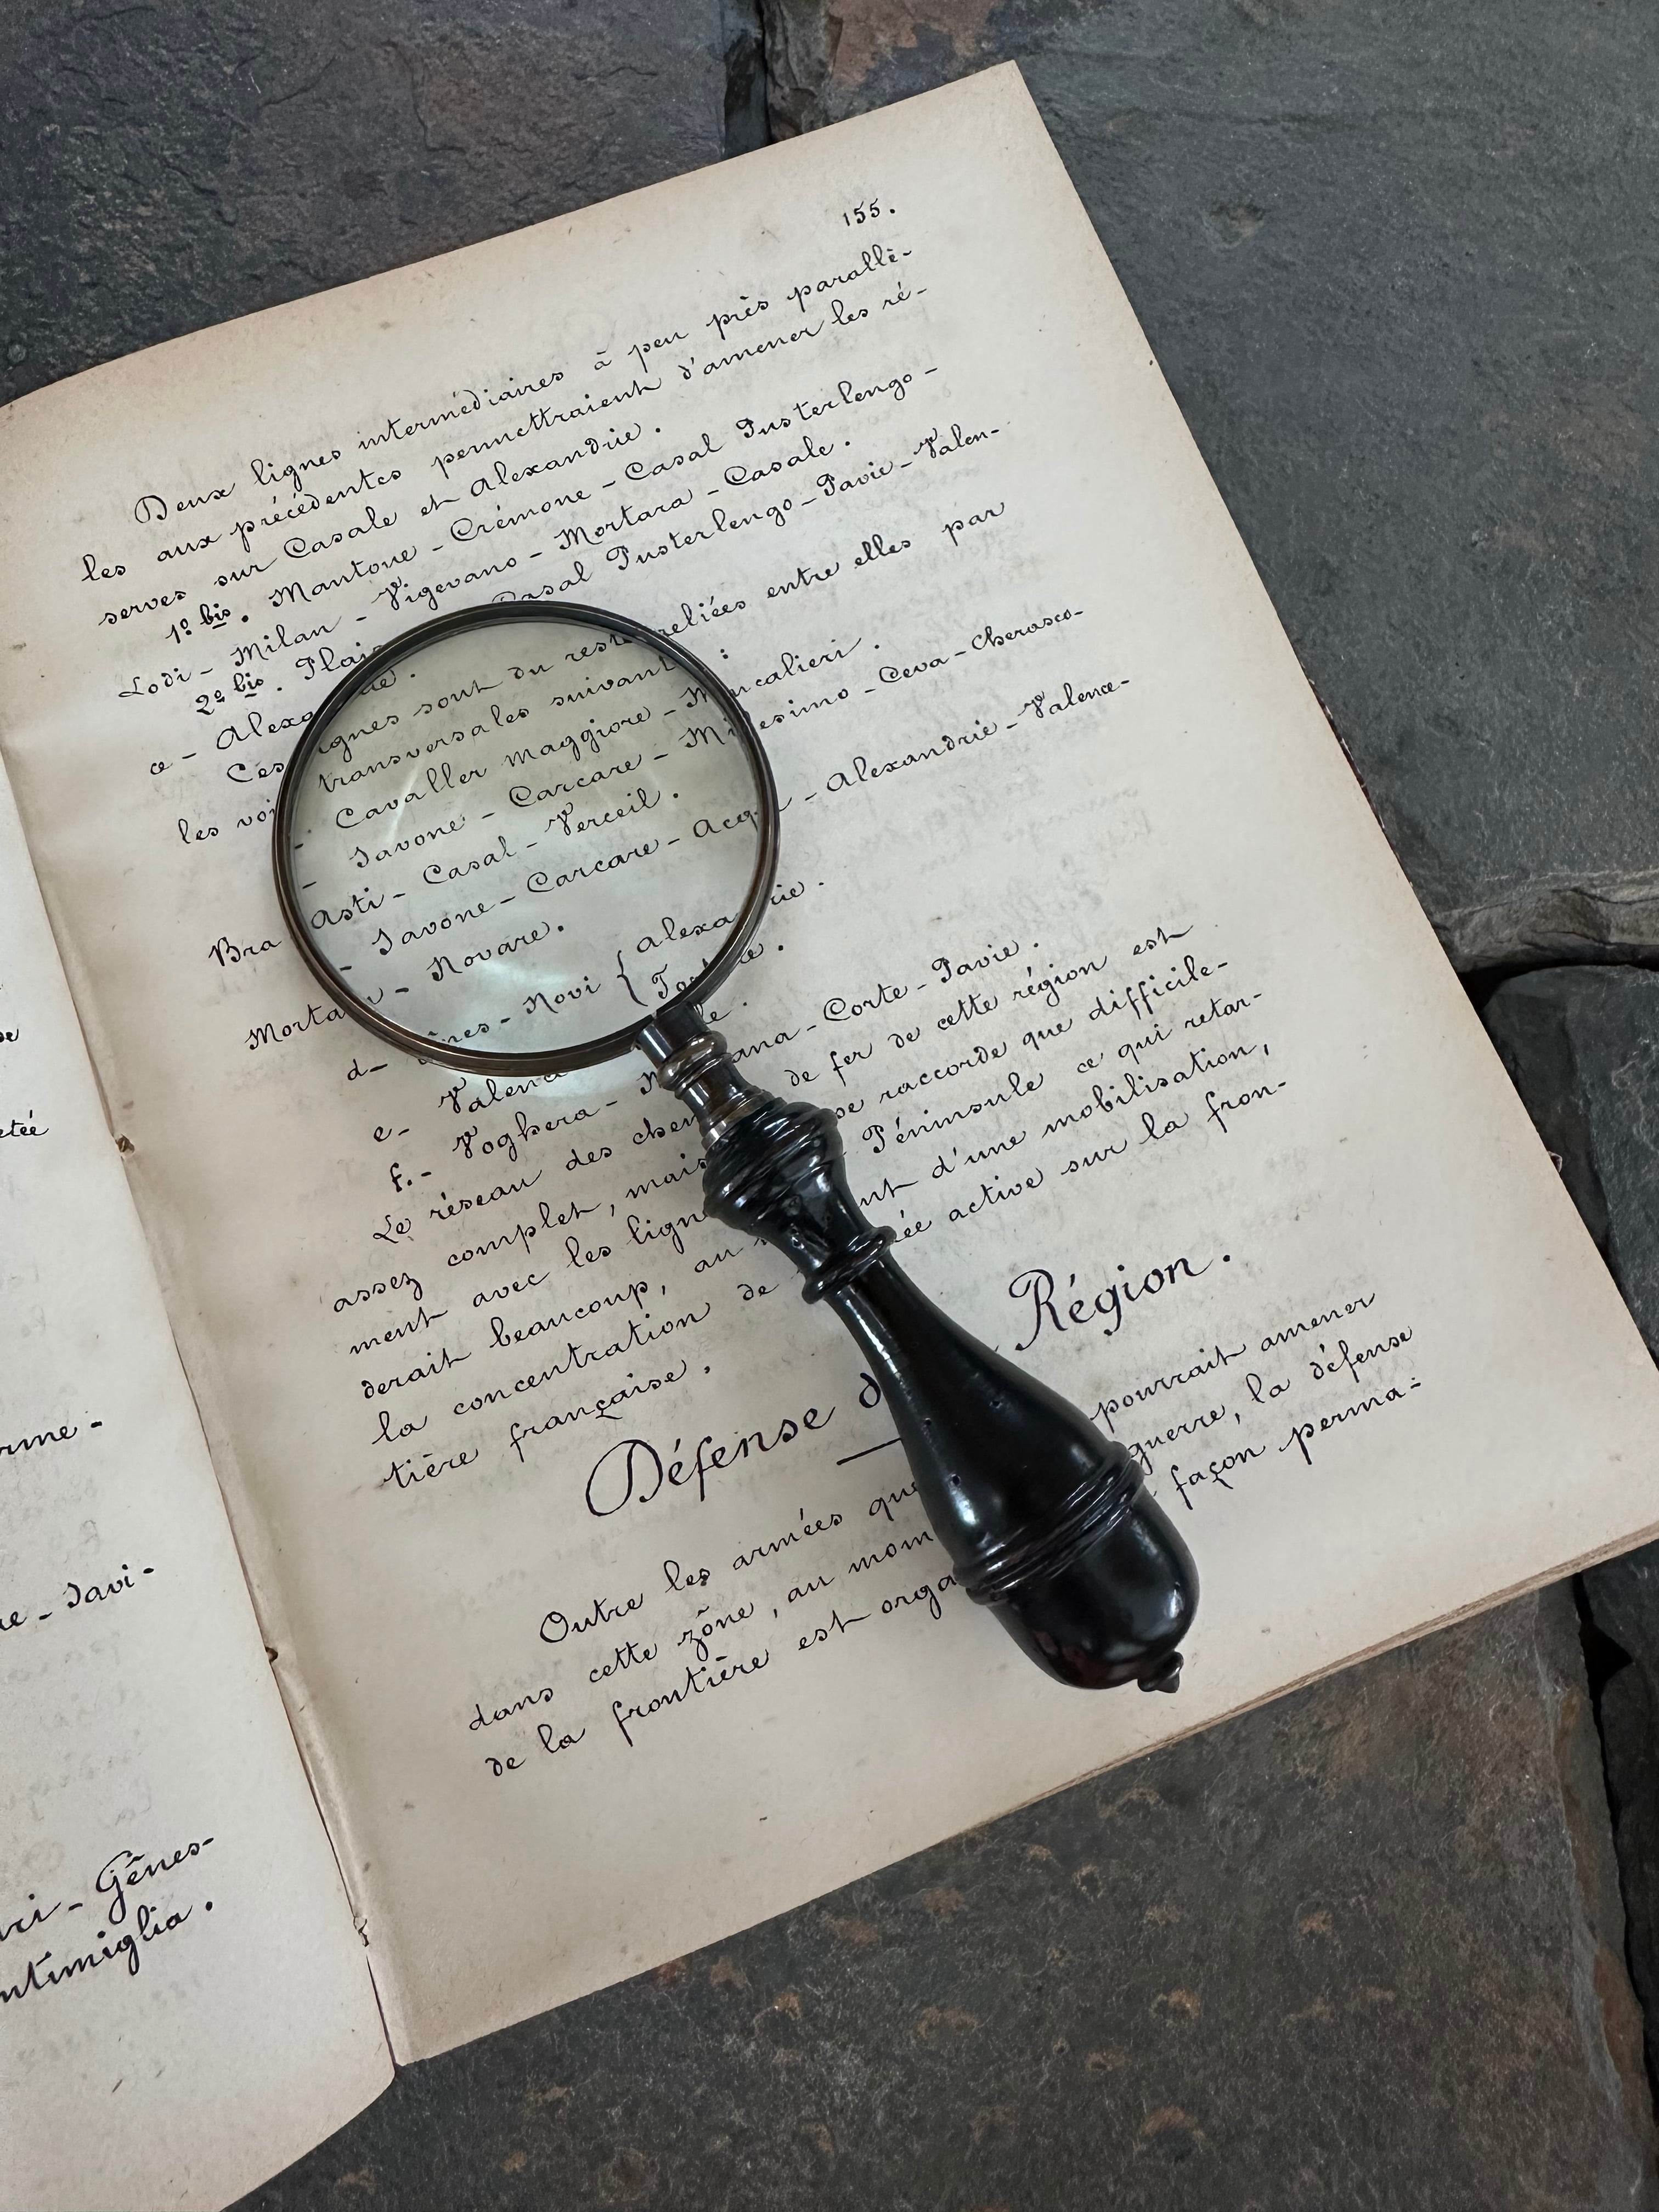 155.
Deux lignes intermédiaires à peu près parallè-
les aux précédentes permettraient d'amener les ré-
serves sur Casale et Alexandrie.
1º bis. Mantoue - Crémone - Casal Pusterlengo -
Lodi - Milan - Vigevano - Mortara - Casale.
2º bis. Plais Casal Pusterlengo - Pavie - Valen-
ce - Alexa rie.
Ces lignes sont du reste reliées entre elles par
les voi transversales suivant :
- Cavaller Maggiore - Moncalieri.
- Savone - Carcare - Millesimo - Ceva - Cherasco -
Bra Asti - Casal - Verceil.
- Savone - Carcare - Acqui - Alexandrie - Valence -
Mortara - Novare.
d - Gênes - Novi { Alexandrie.
Tortone.
e - Valence le.
f. - Voghera - ana - Corte - Pavie.
Le réseau des chem de fer de cette région est
assez complet, mais se raccorde que difficile-
ment avec les lign Péninsule ce qui retar-
derait beaucoup, au nt d'une mobilisation,
la concentration de ée active sur la fron-
tière française.
Défense d Région.
Outre les armées que pourrait amener
dans cette zône, au mom guerre, la défense
de la frontière est orga façon perma-
etée
rme -
e - Savi -
ri - Gênes -
ntimiglia.